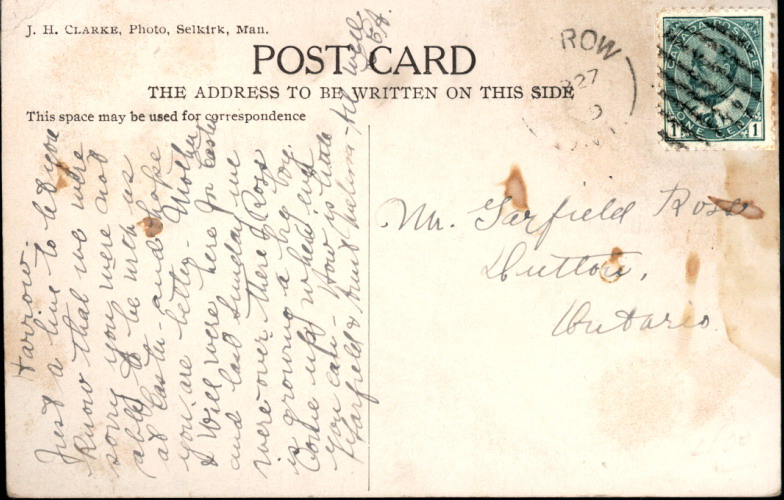 J. H. CLARKE, Photo, Selkirk, Man.
POST CARD
THE ADDRESS TO BE WRITTEN ON THIS SIDE
This space may be used for correspondence
ROW
27
CANADA POSTAGE
1 ONE CENT 1
Mr. Garfield Ross
Dutton,
Ontario.
Harrow.
Just a line to let you
know that we were
sorry you were not
able to be with us
at Easter - and hope
you are better - Mother
& Will were here for Easter
and last Sunday we
were over there. Ross
is growing a big boy.
Come up when ever
you can - How is little
Garfield & Aunt Melissa - All well